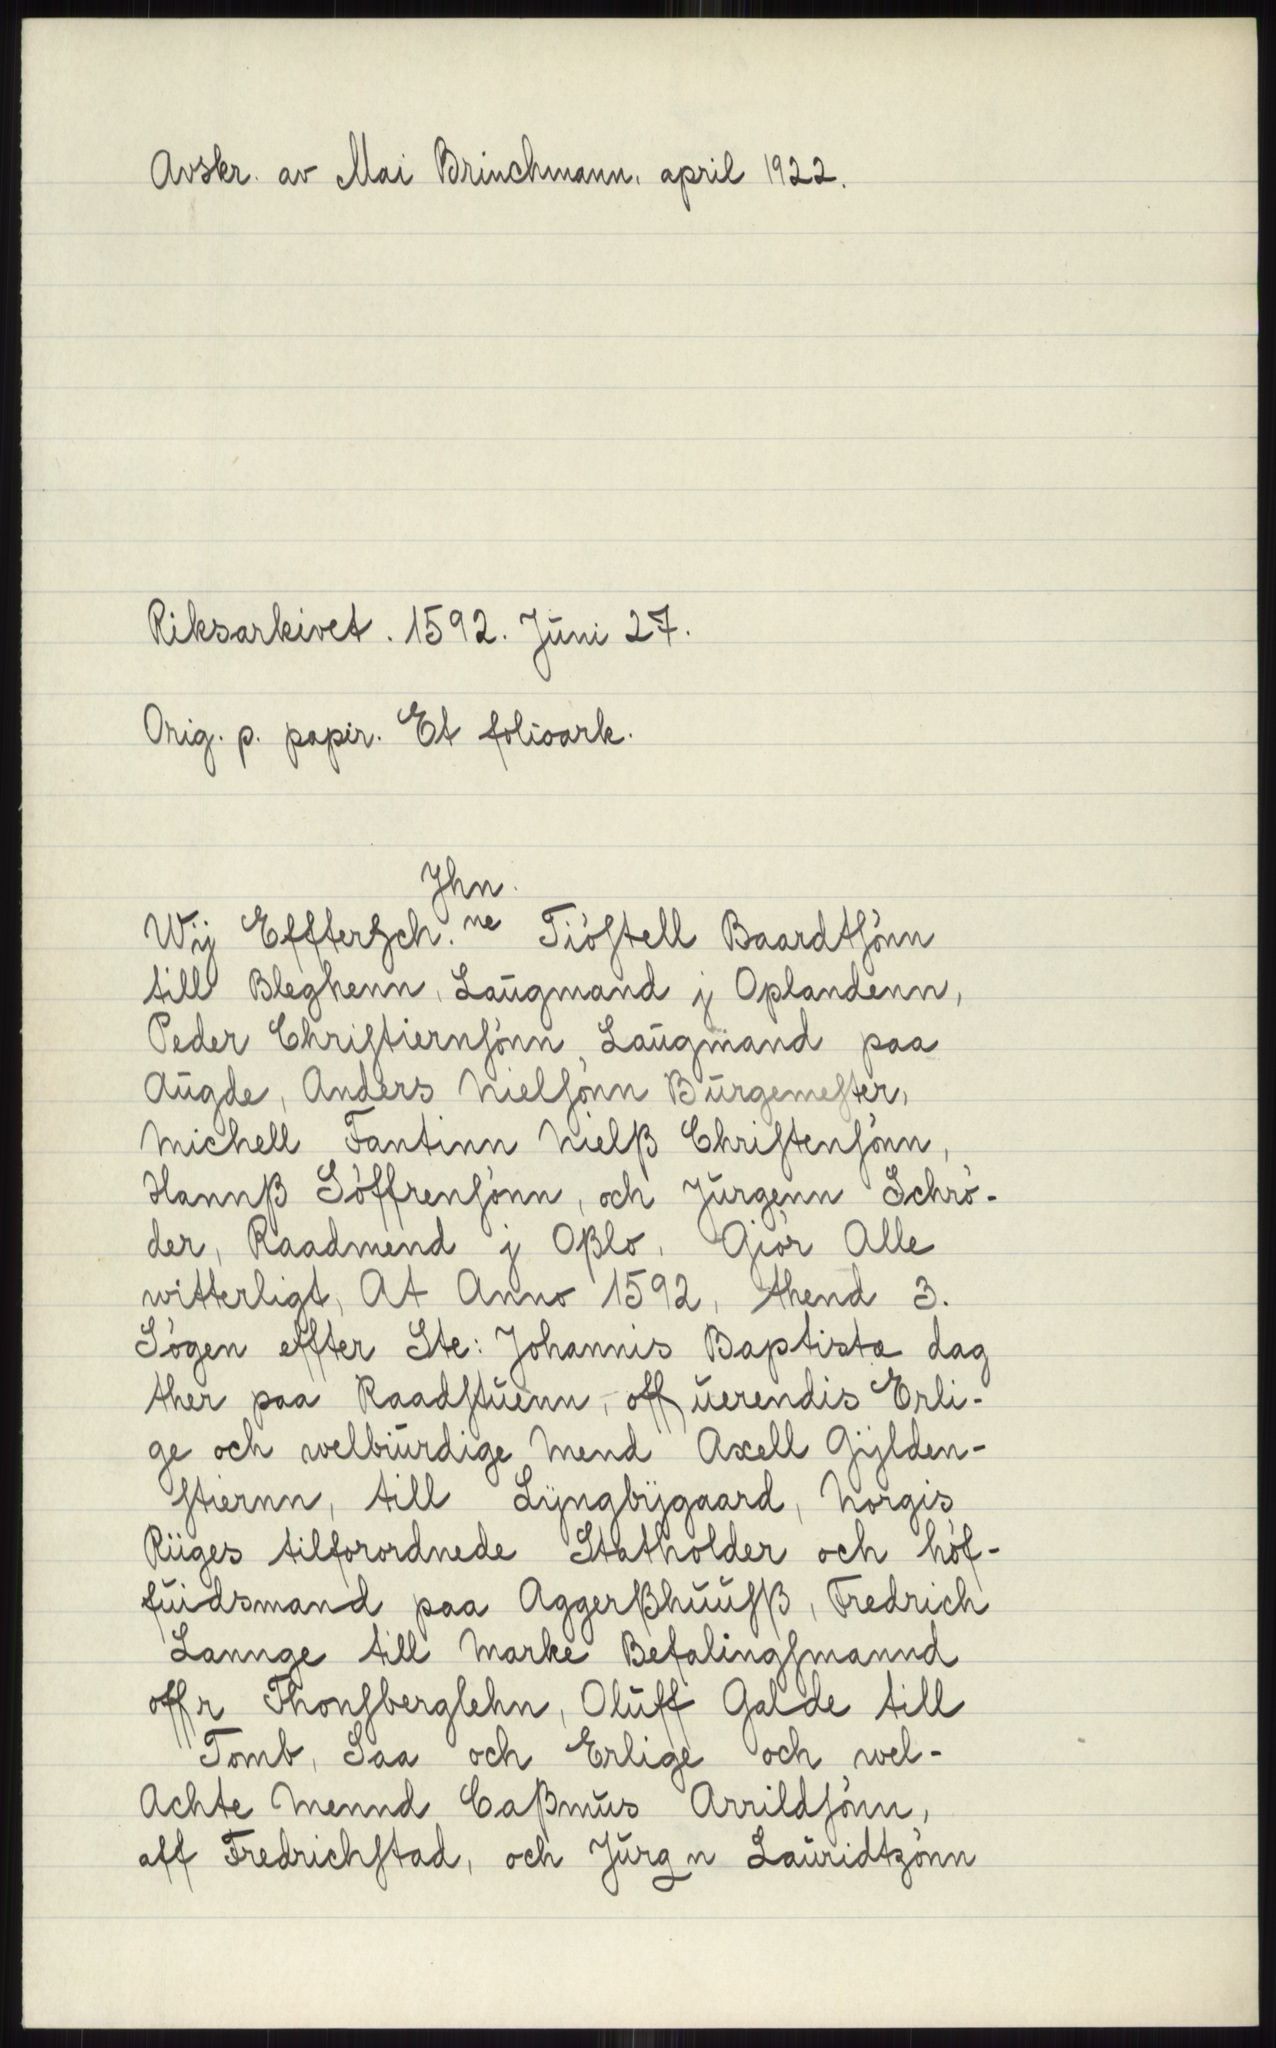 Avskr. av Mai Brinchmann, april 1922.
Riksarkivet. 1592. Jŭni 27.
Orig. p. papir. Et folioark.
Jhn.
Wÿ Effterſch. ne Tiöſtell Baardtſönn
till Bleghenn, Laŭgmand j Oplandenn,
Peder Chriſtiernſönn, Laŭgmand paa
Aŭgde, Anders Nielſönn Bŭrgemeſter,
Michell Fantinn Nielß Chriſtenſönn,
Hannß Söffrenſönn, och Jŭrgenn Schrö-
der, Raadmend j Oßlo, Giör Alle
witterligt, At Anno 1592, thend 3.
Sögen effter Ste: Johannis Baptista dag
ther paa Raadſtŭenn, off ŭerendis Erli-
ge och welbiŭrdige Mend Axell Gÿlden-
ſtiernn, till Lÿngbÿgaard, Norgis
Riiges tilforordnede Statholder och höf-
fŭidsmand paa Aggerßhŭŭſß, Fredrich
Lannge till Marke Befalingſmannd
offr Thonſberglehn, Olŭff Galde till
Tomb, Saa och Erlige och wel-
Achte Mennd Caßmŭs Arrildſönn,
aff Fredrichſtad, och Jŭrgn Laŭridtzönn